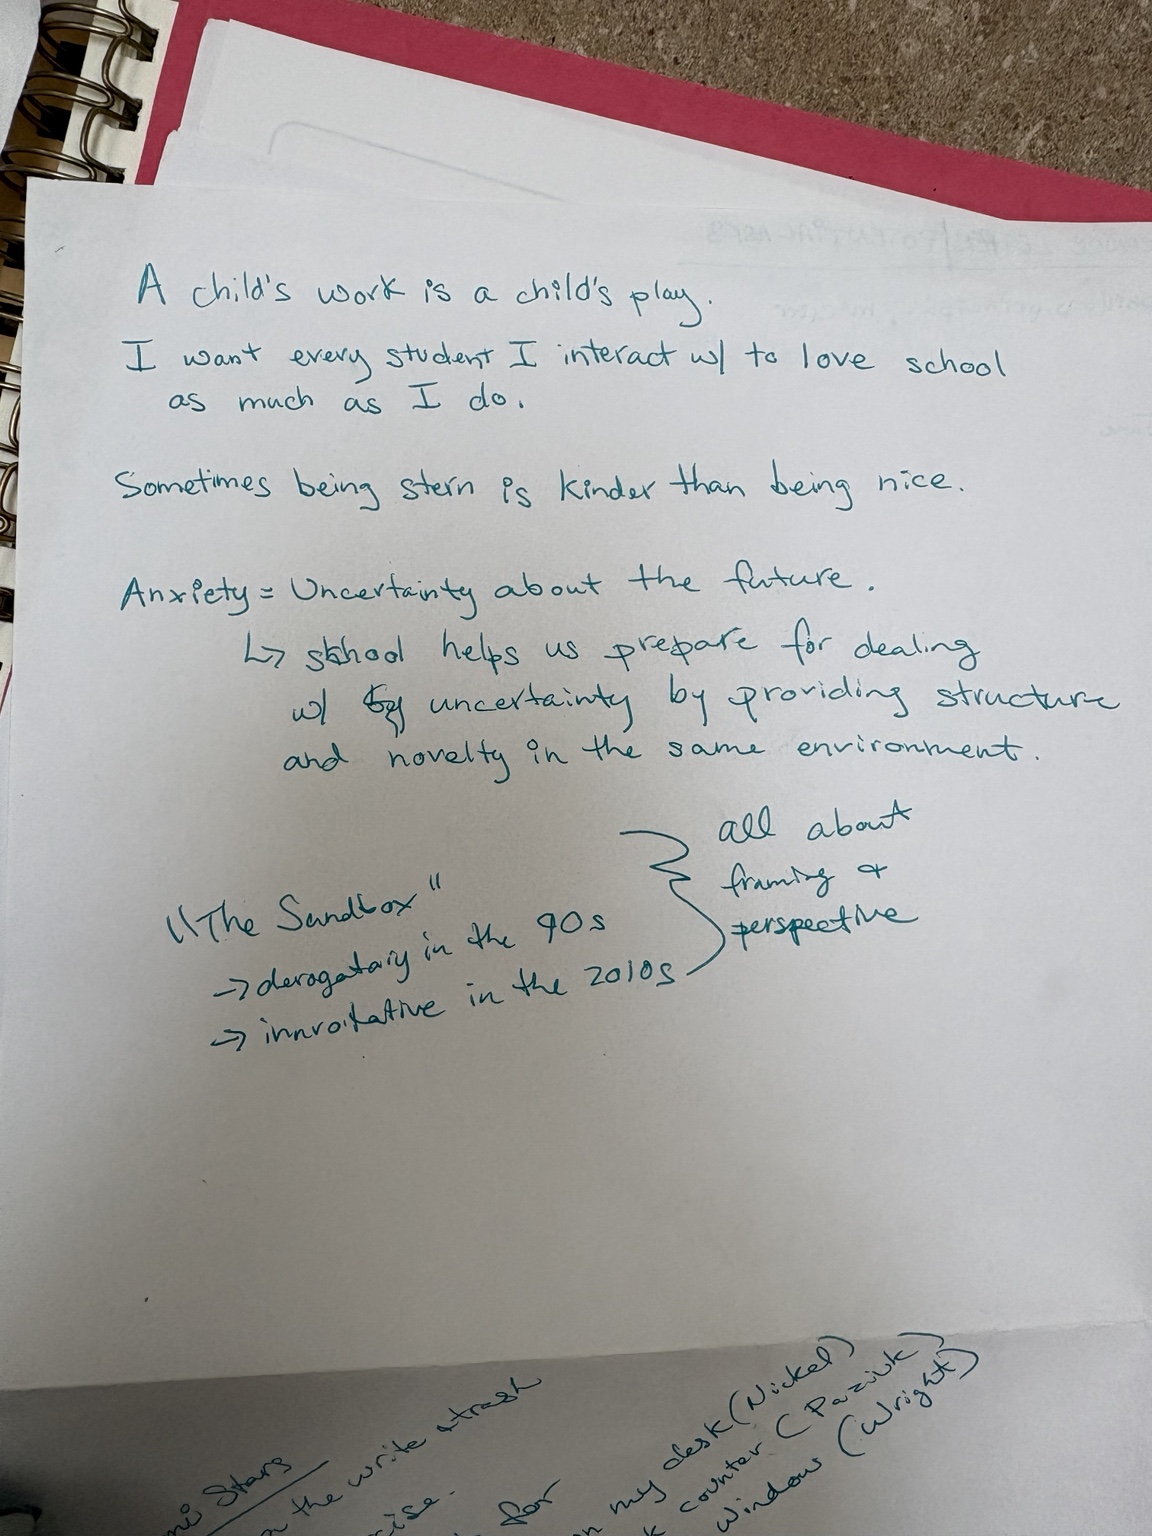 A child's work is a child's play.
I want every student I interact w/ to love school
as much as I do.
Sometimes being stern is kinder than being nice.
Anxiety = Uncertainty about the future.
↳ school helps us prepare for dealing
w/ uncertainty by providing structure
and novelty in the same environment.
"The Sandbox"
→ derogatory in the 90s
→ innvoitative in the 2010s
all about
framing &
perspective
Stars
the write + trash
for
my desk (Nickel)
counter (Paziuk)
Window (Wright)